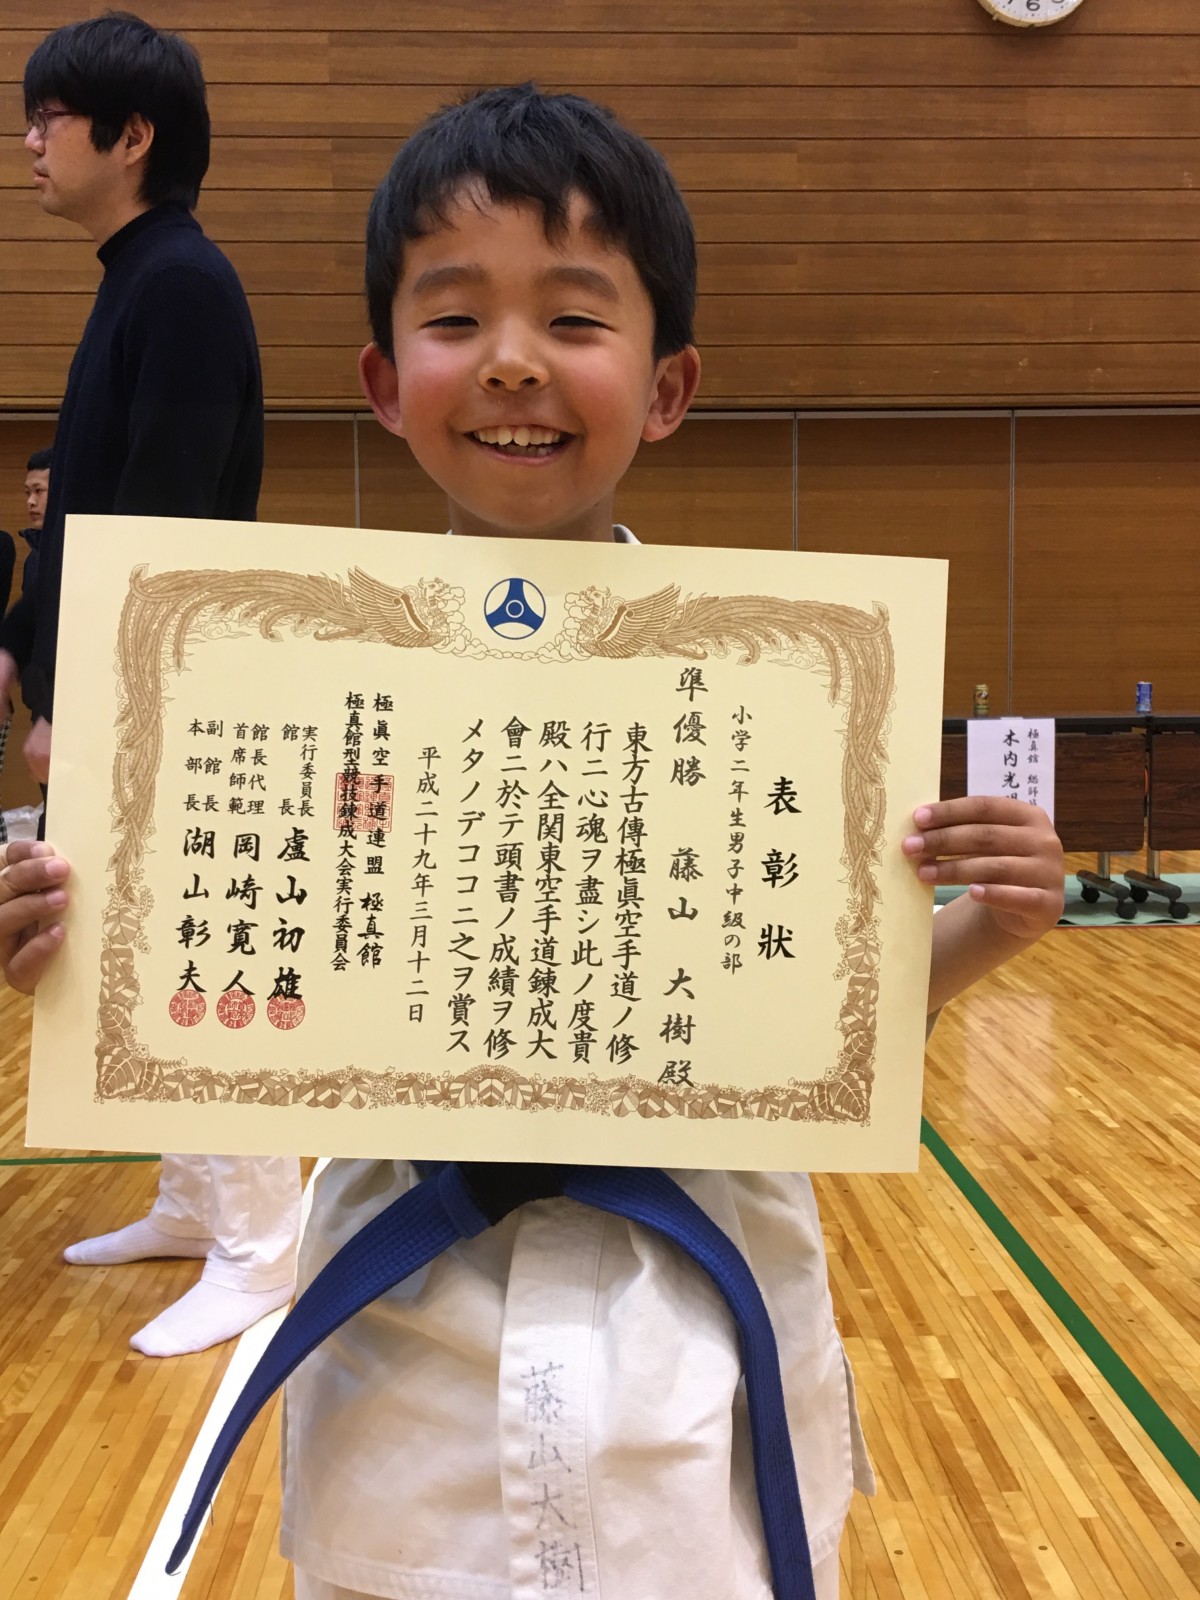 表彰状
小学二年生男子中級の部
準優勝 藤山 大樹殿
東方古傳極眞空手道ノ修
行ニ心魂ヲ盡シ此ノ度貴
殿ハ全関東空手道錬成大
會ニ於テ頭書ノ成績ヲ修
メタノデココニ之ヲ賞ス
平成二十九年三月十二日
極眞空手道連盟 極真館
極真館型競技錬成大会実行委員会
実行委員長
館長 盧山初雄
館長代理
首席師範 岡崎寛人
副館長
本部長 湖山彰夫
藤山大樹
極真館 総師
木内光
6